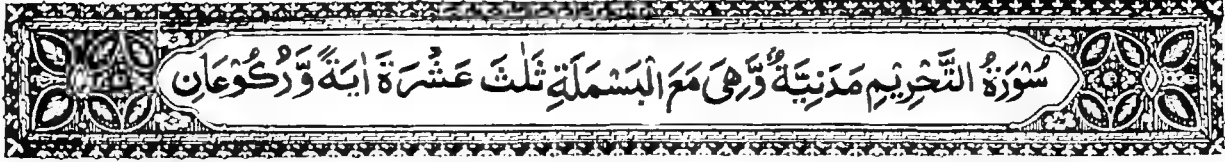 سُوْرَةُ التَّحْرِيْمِ مَدَنِيَّةٌ وَّهِيَ مَعَ الْبَسْمَلَةِ ثَلٰثَ عَشْرَةَ اٰيَةً وَّرُكُوْعَانِ